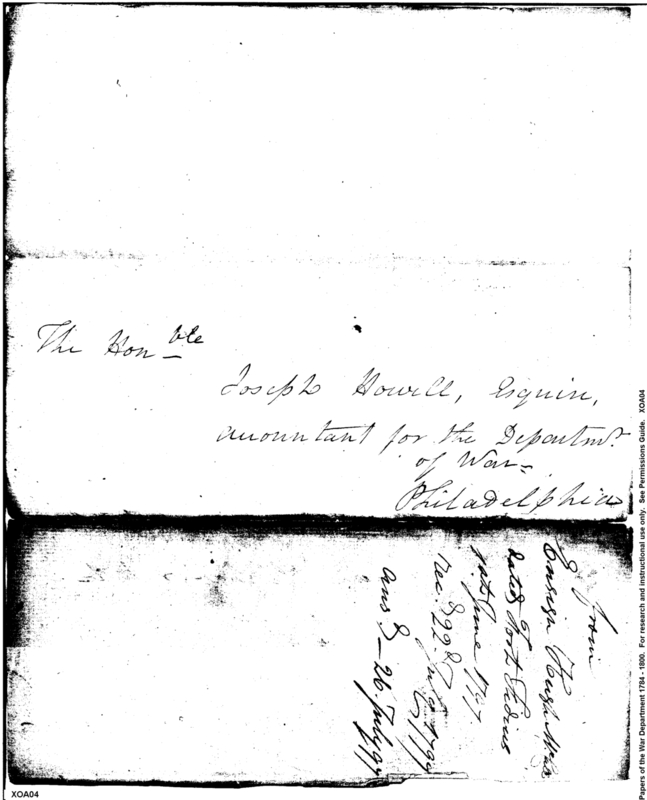 The Honble
Joseph Howell, Esquire,
accountant for the Departmt.
of War
Philadelphia
from
Ensign Hugh
dated Fort
June 1794
Rec.d 22.d July 1794
ans.d 26 July 94
Papers of the War Department 1784 - 1800. For research and instructional use only. See Permissions Guide. XOA04
XOA04